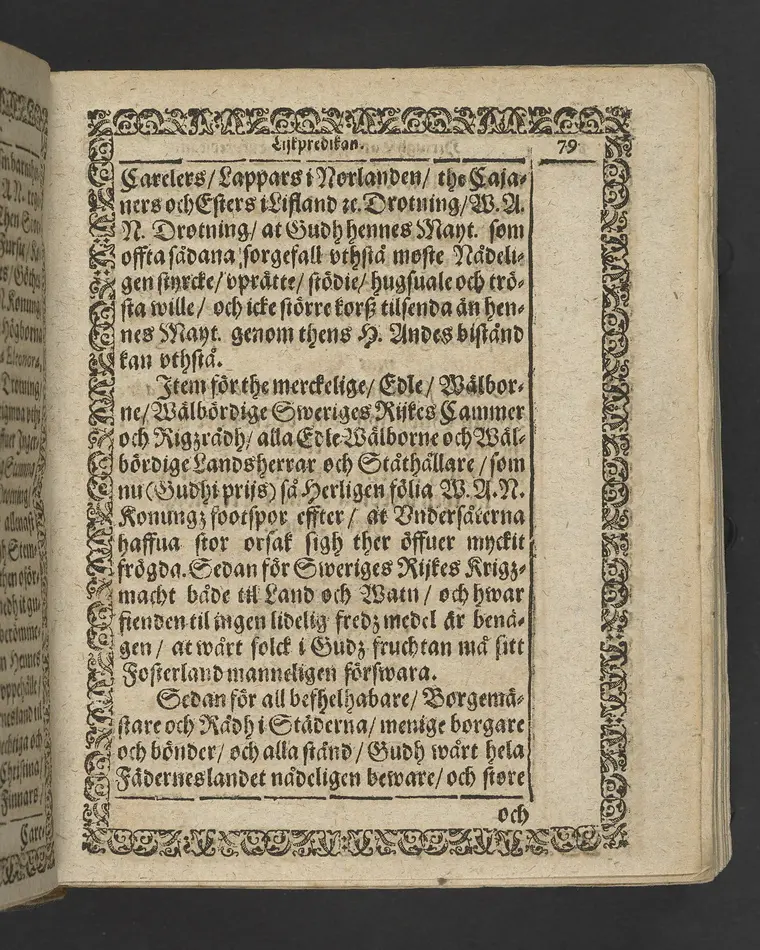 Lijkpredikan. 79
Carelers/ Lappars i Norlanden/ the Caja-
ners och Esters i Lifland ꝛc. Drotning/ W. A.
N. Drotning/ at Gudh hennes Mayt. som
offta sådana sorgefall vthstå moste Nådeli-
gen styrcke/ vprätte/ stödie/ hugsuale och trö-
sta wille/ och icke större korß tilsenda än hen-
nes Mayt. genom thens H. Andes bistånd
kan vthstå.
Item för the merckelige/ Edle/ Wälbor-
ne/ Wälbördige Sweriges Rijkes Cammer
och Rigzrådh/ alla Edle Wälborne och Wäl-
bördige Landsherrar och Ståthållare/ som
nu (Gudhi prijs) så Herligen fölia W. A. N.
Konungz footspor effter/ at Vndersåterna
haffua stor orsak sigh ther öffuer myckit
frögda. Sedan för Sweriges Rijkes Krigz-
macht både til Land och Watn/ och hwar
fienden til ingen lidelig fredz medel är benä-
gen/ at wårt folck i Gudz fruchtan må sitt
Fosterland manneligen förswara.
Sedan för all befhelhabare/ Borgemä-
stare och Rådh i Städerna/ menige borgare
och bönder/ och alla stånd/ Gudh wårt hela
Fäderneslandet nådeligen beware/ och støre
och
Konung
Högborna
Drotning/
allena
Hennes
Christina/
Finnars/
Care-